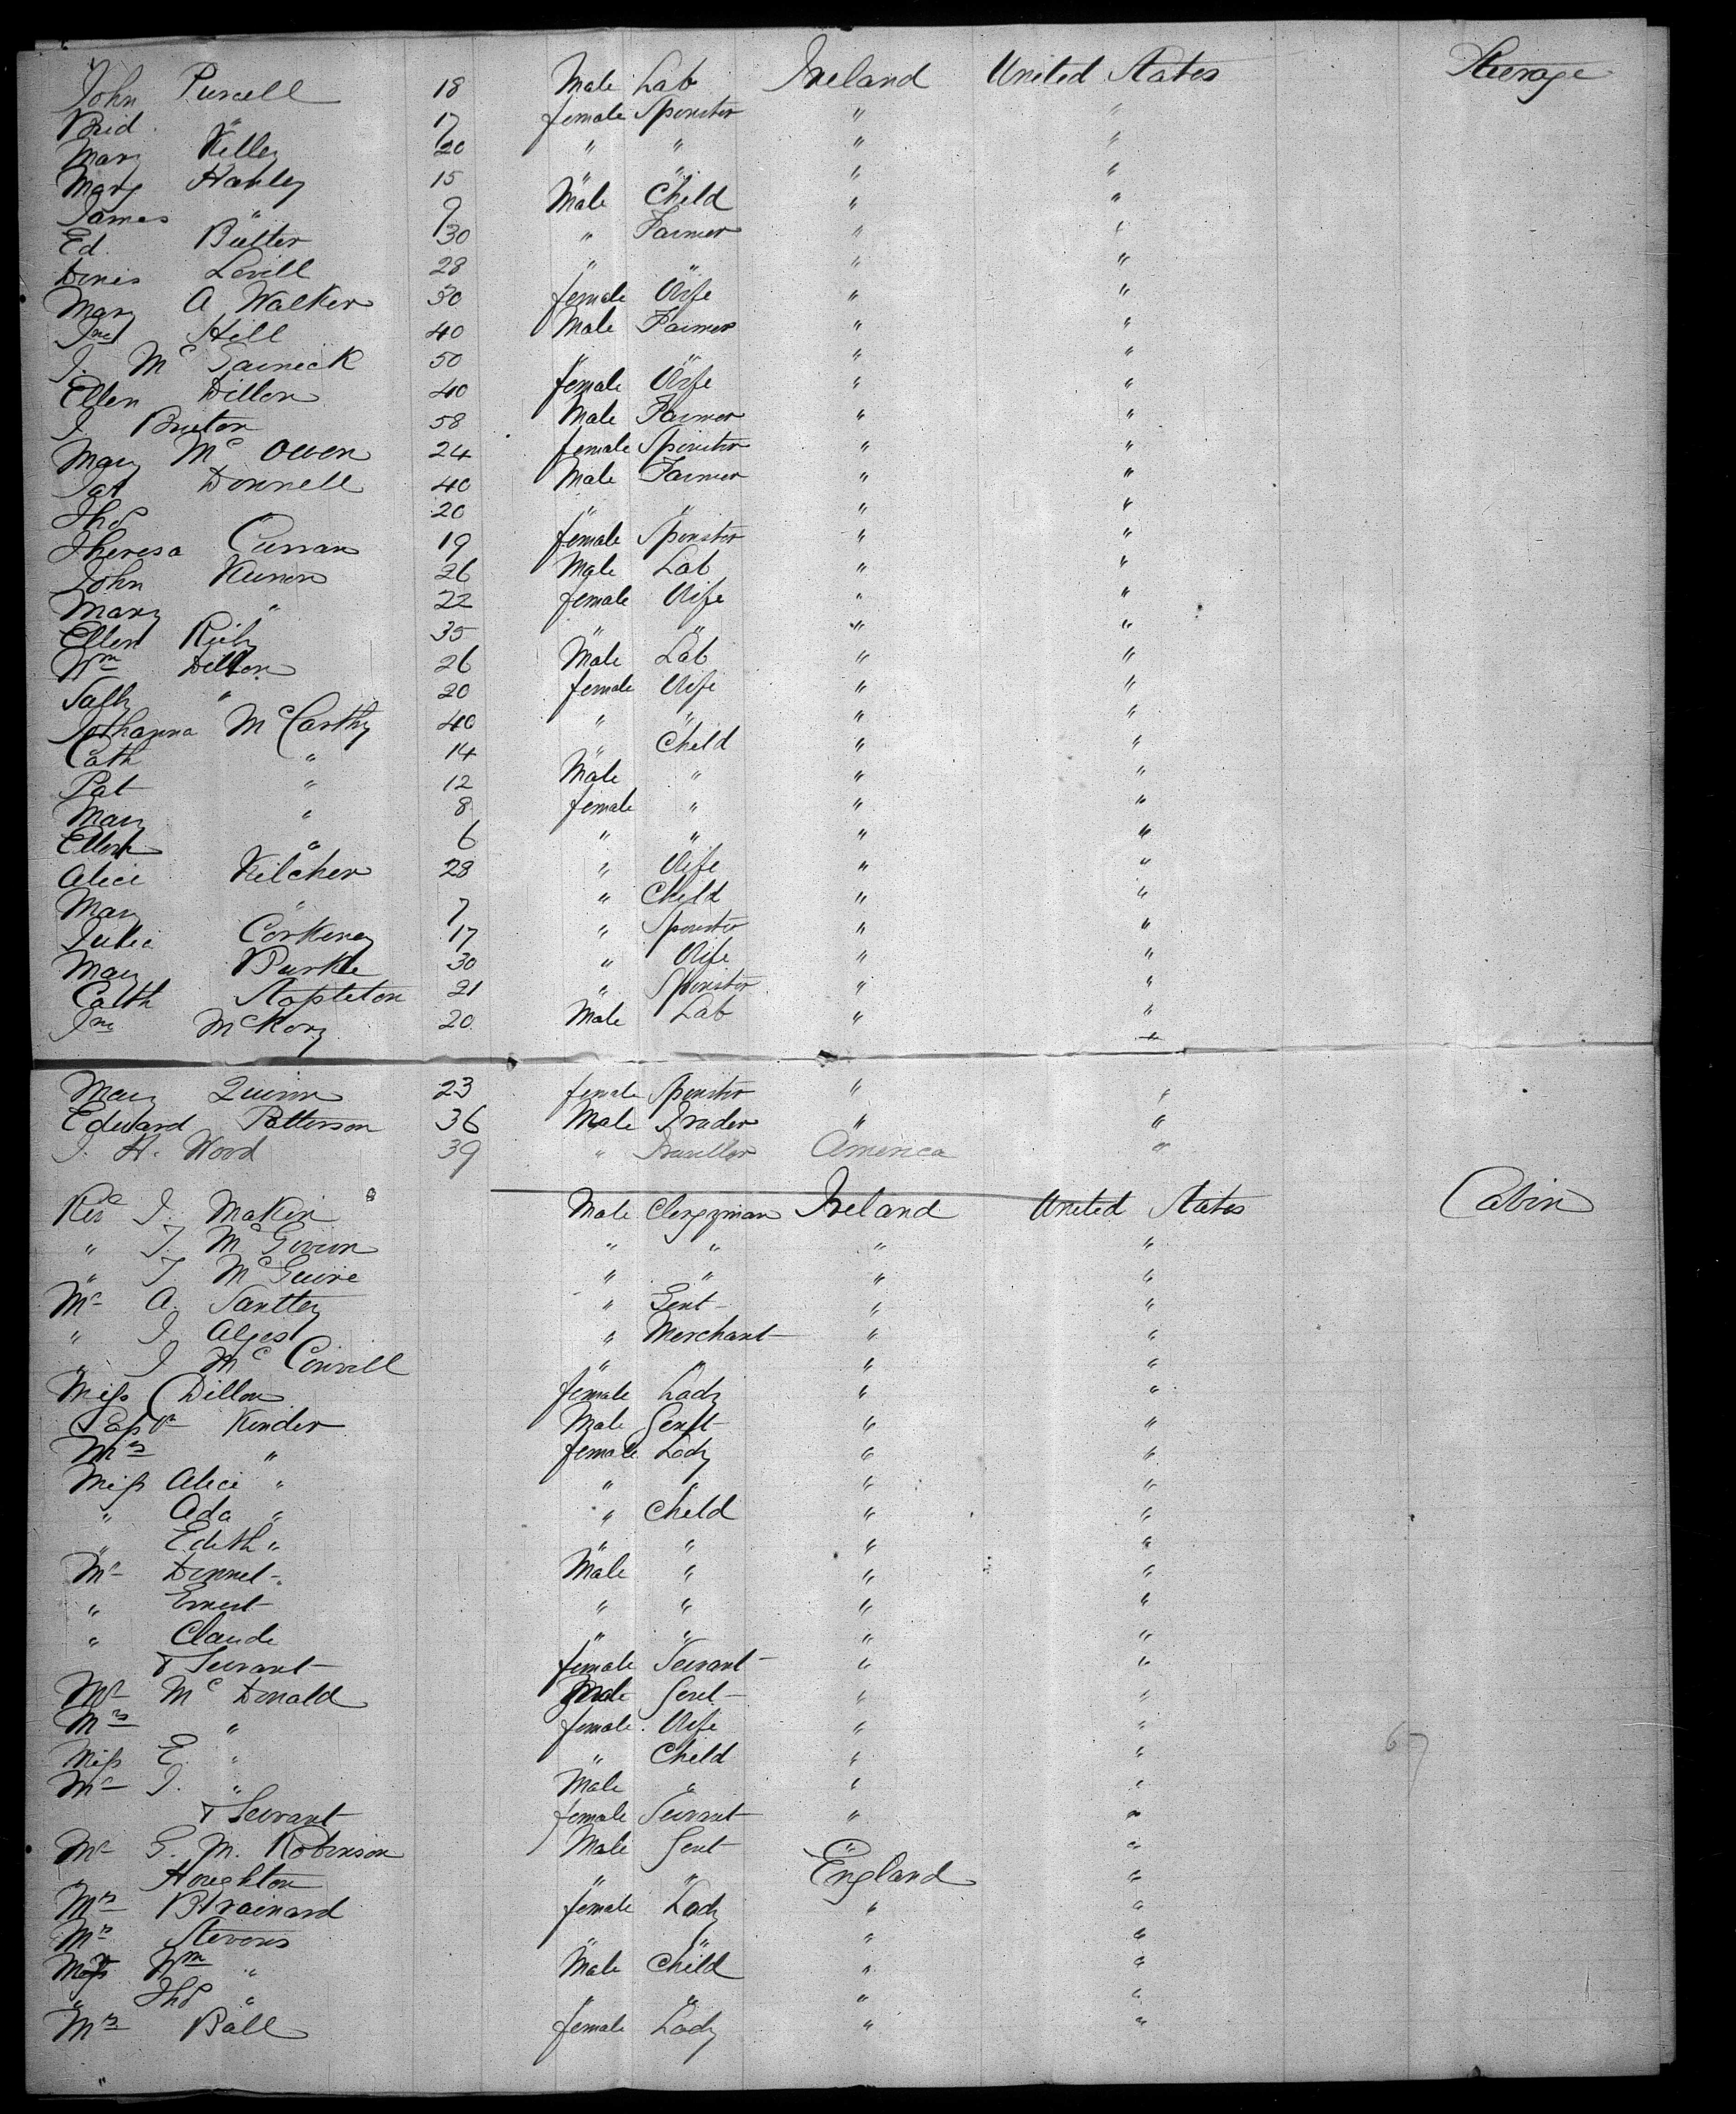 John Purcell 18 Male Lab Ireland United States Steerage
Brid. " 17 female Spinster " "
Mary Kelley 20 " " " "
Mary Hanley 15 " " " "
James " 9 Male Child " "
Ed. Butler 30 " Farmer " "
Denis Lovill 28 " " " "
Mary A Walker 30 female Wife " "
Jno Hill 40 Male Farmer " "
J. Mc 50 " " " "
Ellen Dillon 40 female Wife " "
J Bruton 58 Male Farmer " "
Mary Mc Owen 24 female Spinster " "
Pat Donnell 40 Male Farmer " "
Thos " 20 " " " "
Theresa Curran 19 female Spinster " "
John Kunon 26 Male Lab " "
Mary " 22 female Wife " "
Ellen 35 " " " "
Wm Dillon 26 Male Lab " "
Sally " 20 female Wife " "
Johanna McCarthy 40 " " " "
Cath " 14 " Child " "
Pat " 12 Male " " "
Mary " 8 female " " "
Ellen " 6 " " " "
Alice Kilcher 28 " Wife " "
Mary " 7 " Child " "
Julia Corkerey 17 " Spinster " "
Mary Burke 30 " Wife " "
Cath Stapleton 21 " Spinster " "
Jno McKory 20 Male Lab " "
Mary Quinn 23 female Spinster " "
Edward Patterson 36 Male Trader " "
J. H. Wood 39 " Traveller America "
Revd J. Makin Male Clergyman Ireland United States Cabin
" T. McGivern " " " "
" T McGuire " " " "
Mr A. Santley " Gent " "
" J Alges " Merchant " "
" J McConvill " " " "
Miss Dillon female Lady " "
Captn Kinder Male Gent " "
Mrs " female Lady " "
Miss Alice " " " " "
" Ada " " Child " "
" Edith " " " " "
Mr " Male " " "
" Ernest " " " "
" Claude " " " "
& Servant female Servant " "
Mr McDonald Male Gent " "
Mrs " female Wife " "
Miss E. " " Child " " 67
Mr J. " Male " " "
& Servant female Servant " "
Mr G. M. Robinson Male Gent " "
" Houghton " " England "
Mrs Brainard female Lady " "
Mrs Stevens " " " "
Wm " Male Child " "
" Thos " " " " "
Mrs Ball female Lady " "